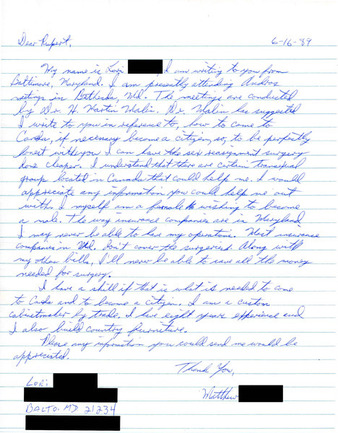 Dear Rupert, 6-16-89
My name is Lori I am writing to you from
Baltimore, Maryland. I am presently attending
meetings in Bethesda, Md. The meetings are conducted
by Dr. H. Martin Malin. Dr. Malin has suggested
I write to you in reference to, how to come to
Canada, if necessary become a citizen, so, to be perfectly
honest with you I can have the sex reassignment surgery
done cheaper. I understand that there are certain
groups located in Canada that could help me. I would
appreciate any information you could help me out
with. I myself am a female wishing to become
a male. The way insurance companies are in Maryland
I may never be able to have my operation. Most insurance
companies in Md. don't cover the surgeries. Along with
my other bills, I'll never be able to save all the money
needed for surgery.
I have a skill if that is what is needed to come
to Canada and to become a citizen. I am a custom
cabinetmaker by trade. I have eight years experience and
I also build country furniture.
Please any information you could send me would be
appreciated.
Thank You,
Matthew
Lori
BALTO. MD 21234